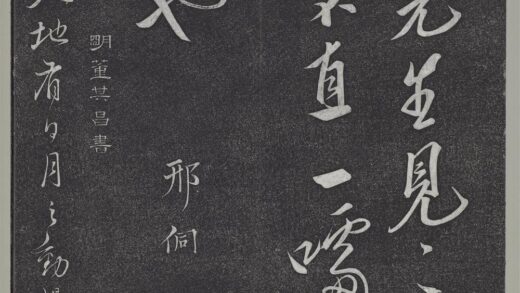 先生見
直一
也
邢侗
明董其昌書
地有日月之動